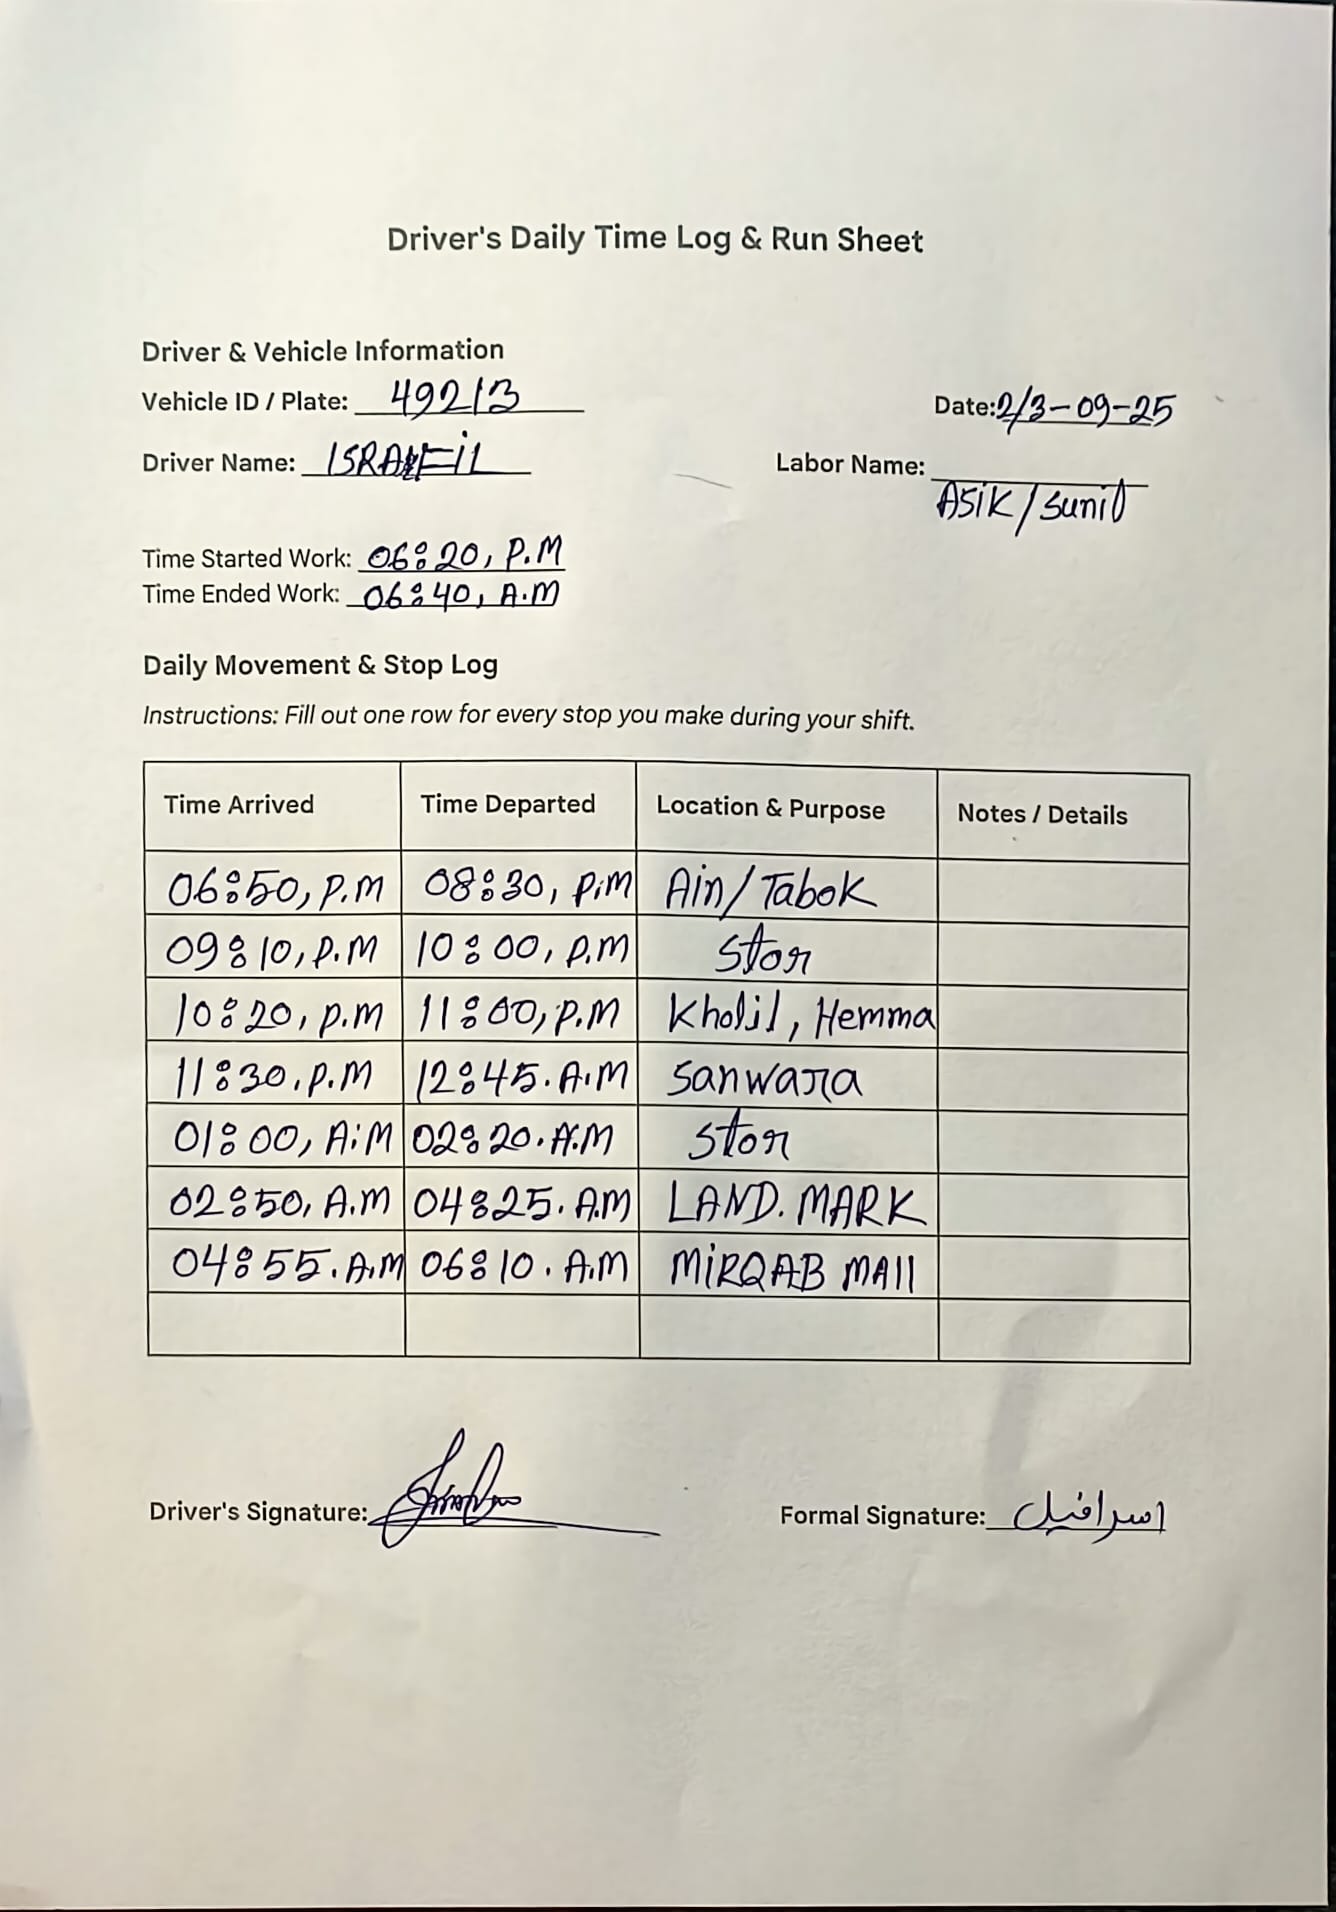 Driver's Daily Time Log & Run Sheet
Driver & Vehicle Information
Vehicle ID / Plate: 49213
Date: 2/3-09-25
Driver Name: ISRAFIL
Labor Name: ASiK / Sunil
Time Started Work: 06:20, P.M
Time Ended Work: 06:40, A.M
Daily Movement & Stop Log
Instructions: Fill out one row for every stop you make during your shift.
Time Arrived Time Departed Location & Purpose Notes / Details
06:50, P.M 08:30, P.M Ain/Tabok
09:10, P.M 10:00, P.M Stor
10:20, P.M 11:00, P.M Kholil, Hemma
11:30, P.M 12:45. A.M Sanwara
01:00, A.M 02:20. A.M Stor
02:50, A.M 04:25. A.M LAND. MARK
04:55. A.M 06:10. A.M MiRQAB MAll
Driver's Signature:
Formal Signature: اسرافيل